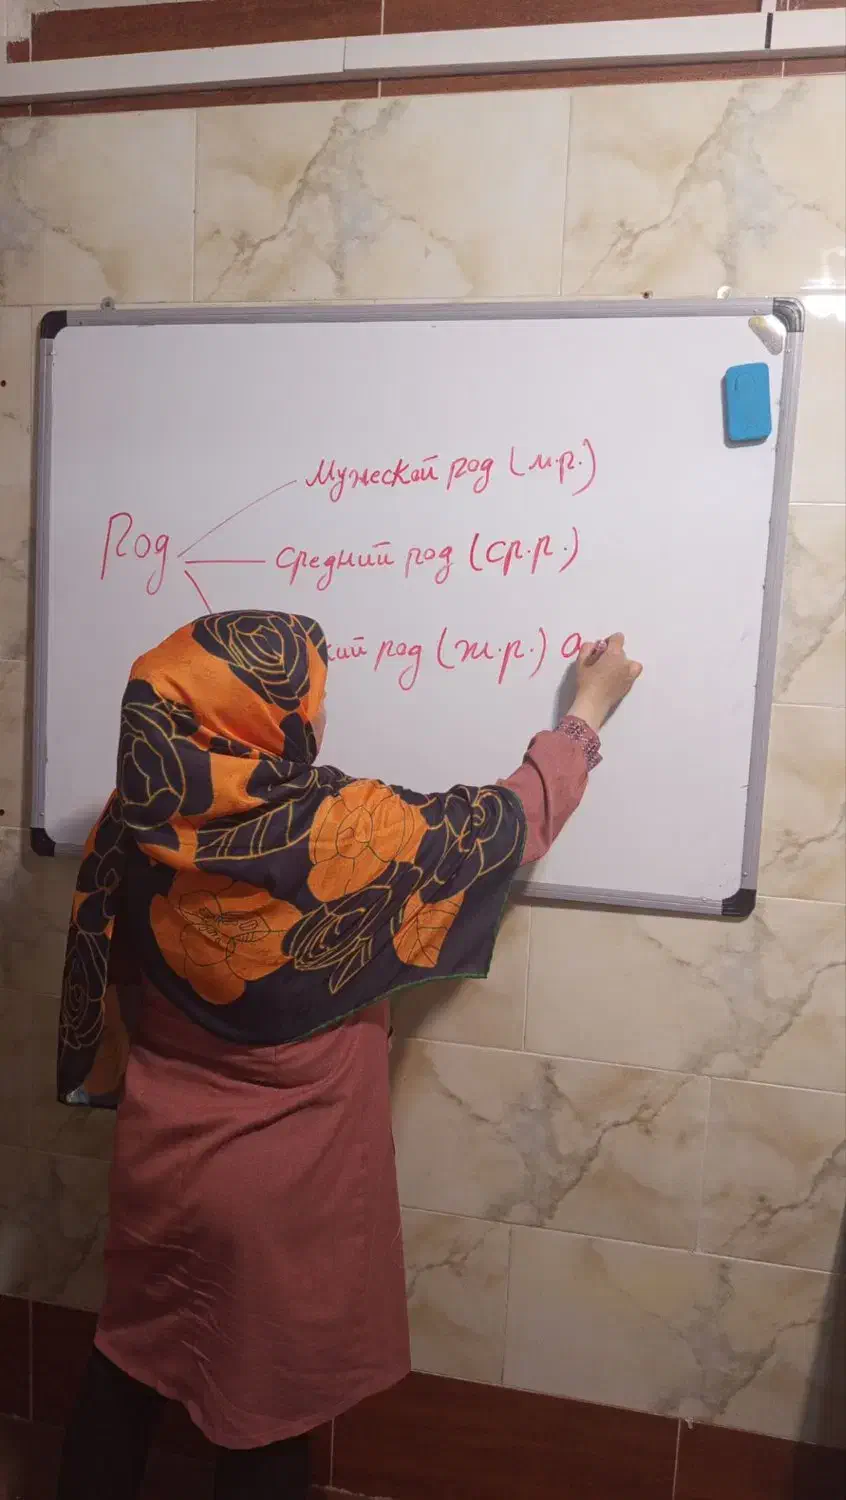 Род
Мужской род (м.р.)
Средний род (ср.р.)
кий род (ж.р.) а